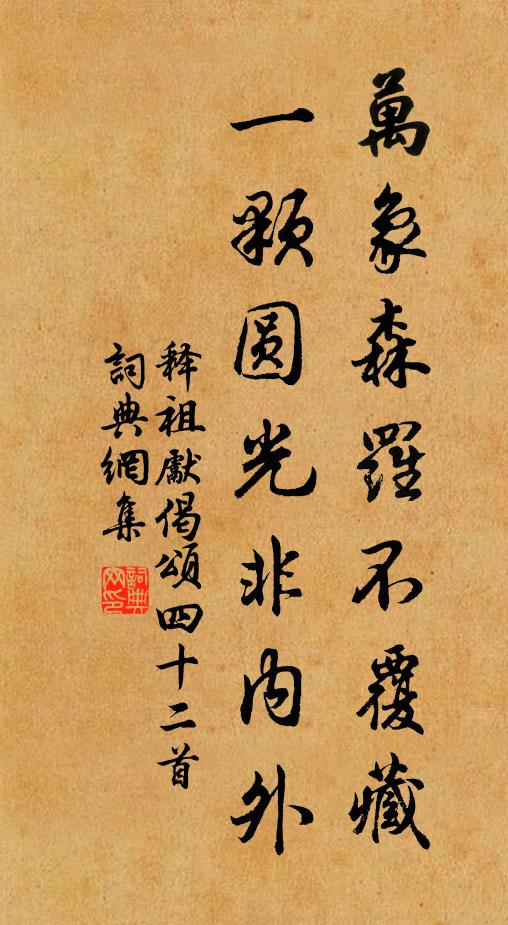 萬象森羅不覆藏
一顆圓光非内外
释祖獻偈頌四十二首
詞典網集
詞典網印